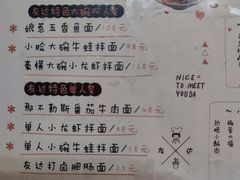 友达特色大碗双人餐
娘惹五香鱼面/108元
小脸大碗牛蛙拌面/98元
豪横大碗小龙虾拌面/168元
友达特色单人餐
那不勒斯番茄牛肉面/48元
单人小龙虾拌面/58元
单人小碗牛蛙拌面/38元
友达打卤肥肠面/25元
NICE
TO MEET
YOUDA
友 达